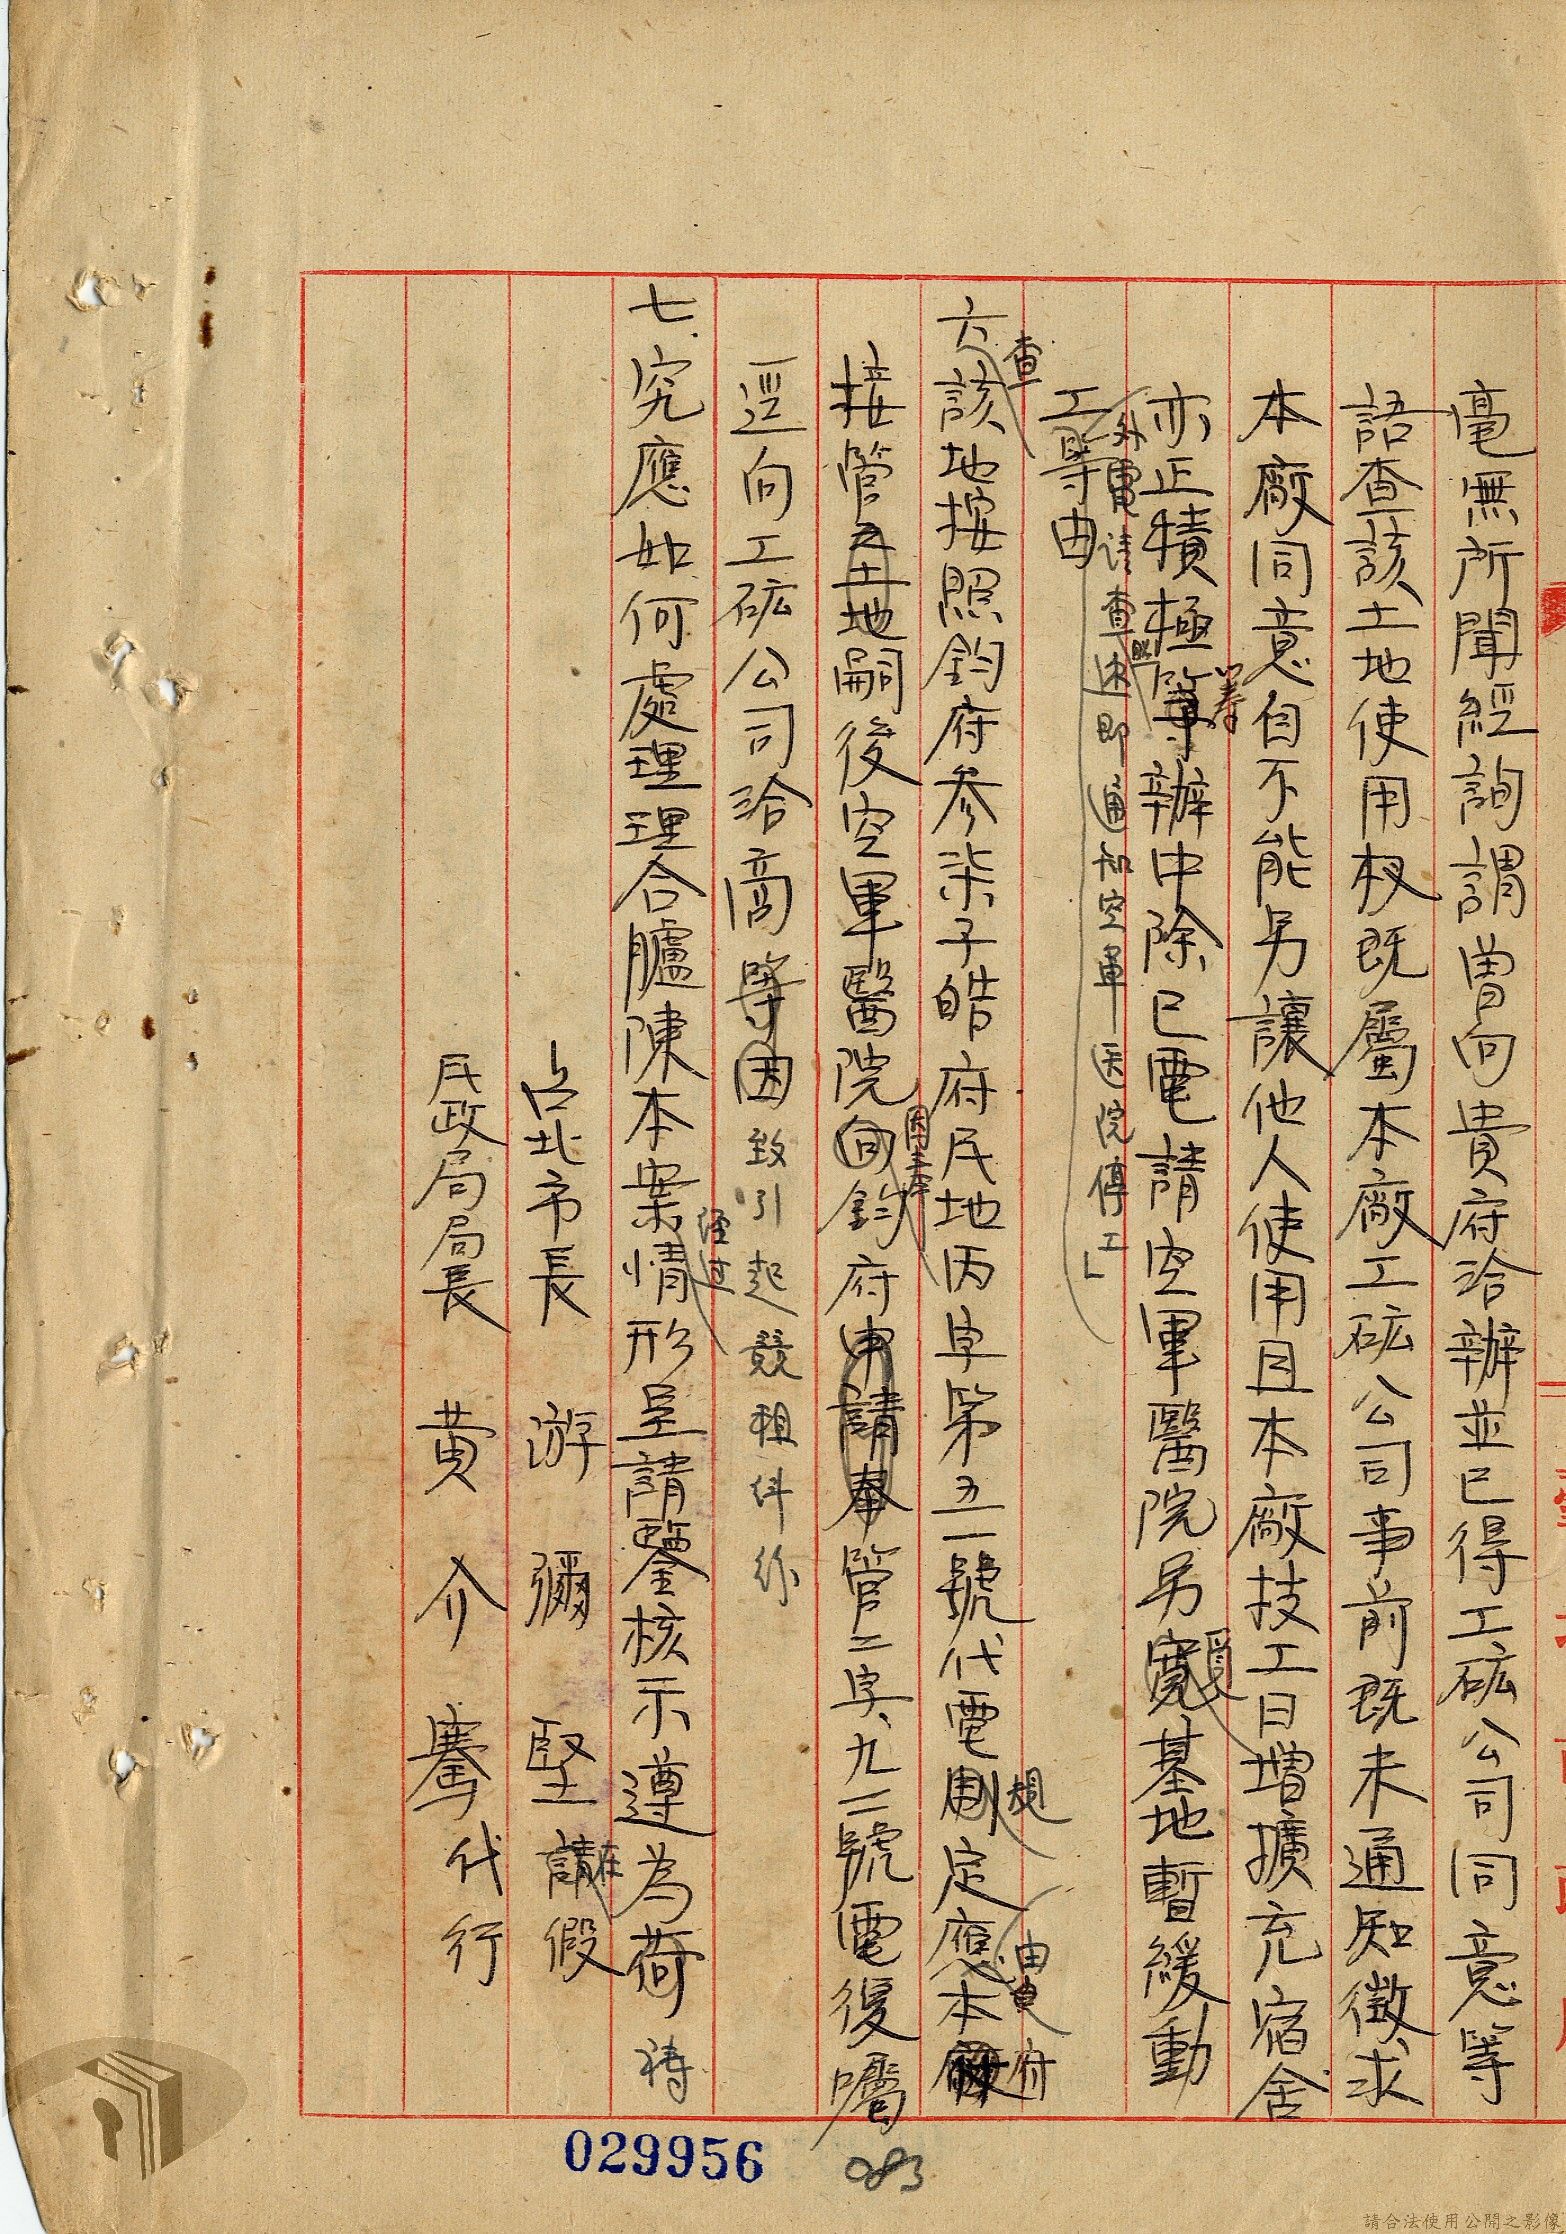 毫無所聞經詢謂曾向貴府洽辦並已得工砿公司同意等
語查該土地使用权既屬本廠工砿公司事前既未通知徵求
本廠同意自不能另讓他人使用且本廠技工日增擴充宿舍
筹
亦正積極籌辦中除已電請空軍醫院另寬基地暫緩動
覓
外電請查照迅即通知空軍医院停工」
工等由
查
六、該地按照鈞府參柒子皓府民地丙字第五一號代電劃定應本府
規
由貴府
接管之土地嗣後空軍醫院向鈞府申請奉管二字、九二號電復囑
逕向工砿公司洽商等因致引起競租纠纷
七、究應如何處理理合臚陳本案情形呈請鑒核示遵為荷
经过
祷
台北市長　游彌堅請假
在
民政局局長　黃介騫代行
029956
083
請合法使用公開之影像